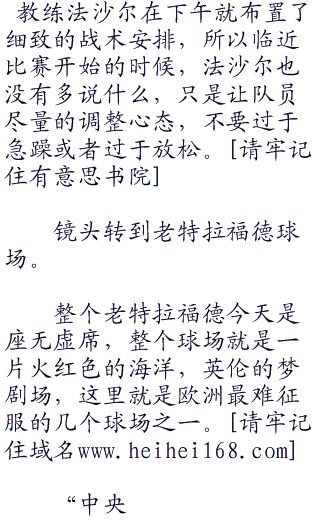 教练法沙尔在下午就布置了
细致的战术安排，所以临近
比赛开始的时候，法沙尔也
没有多说什么，只是让队员
尽量的调整心态，不要过于
急躁或者过于放松。[请牢记
住有意思书院]
镜头转到老特拉福德球
场。
整个老特拉福德今天是
座无虚席，整个球场就是一
片火红色的海洋，英伦的梦
剧场，这里就是欧洲最难征
服的几个球场之一。[请牢记
住域名www.heihei168.com]
“中央